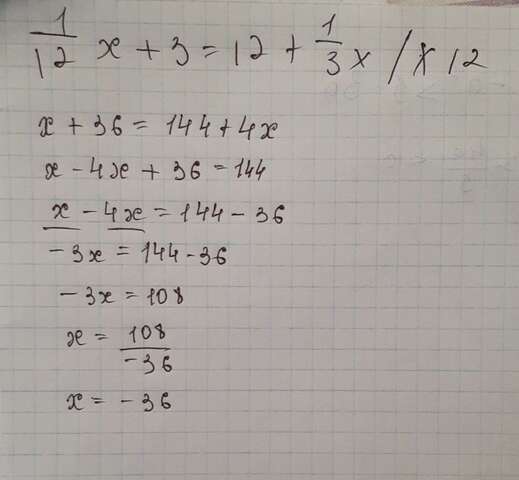 1/12 x + 3 = 12 + 1/3 x / X 12
x + 36 = 144 + 4x
x - 4x + 36 = 144
x - 4x = 144 - 36
- 3x = 144 - 36
- 3x = 108
x = 108/-36
x = - 36